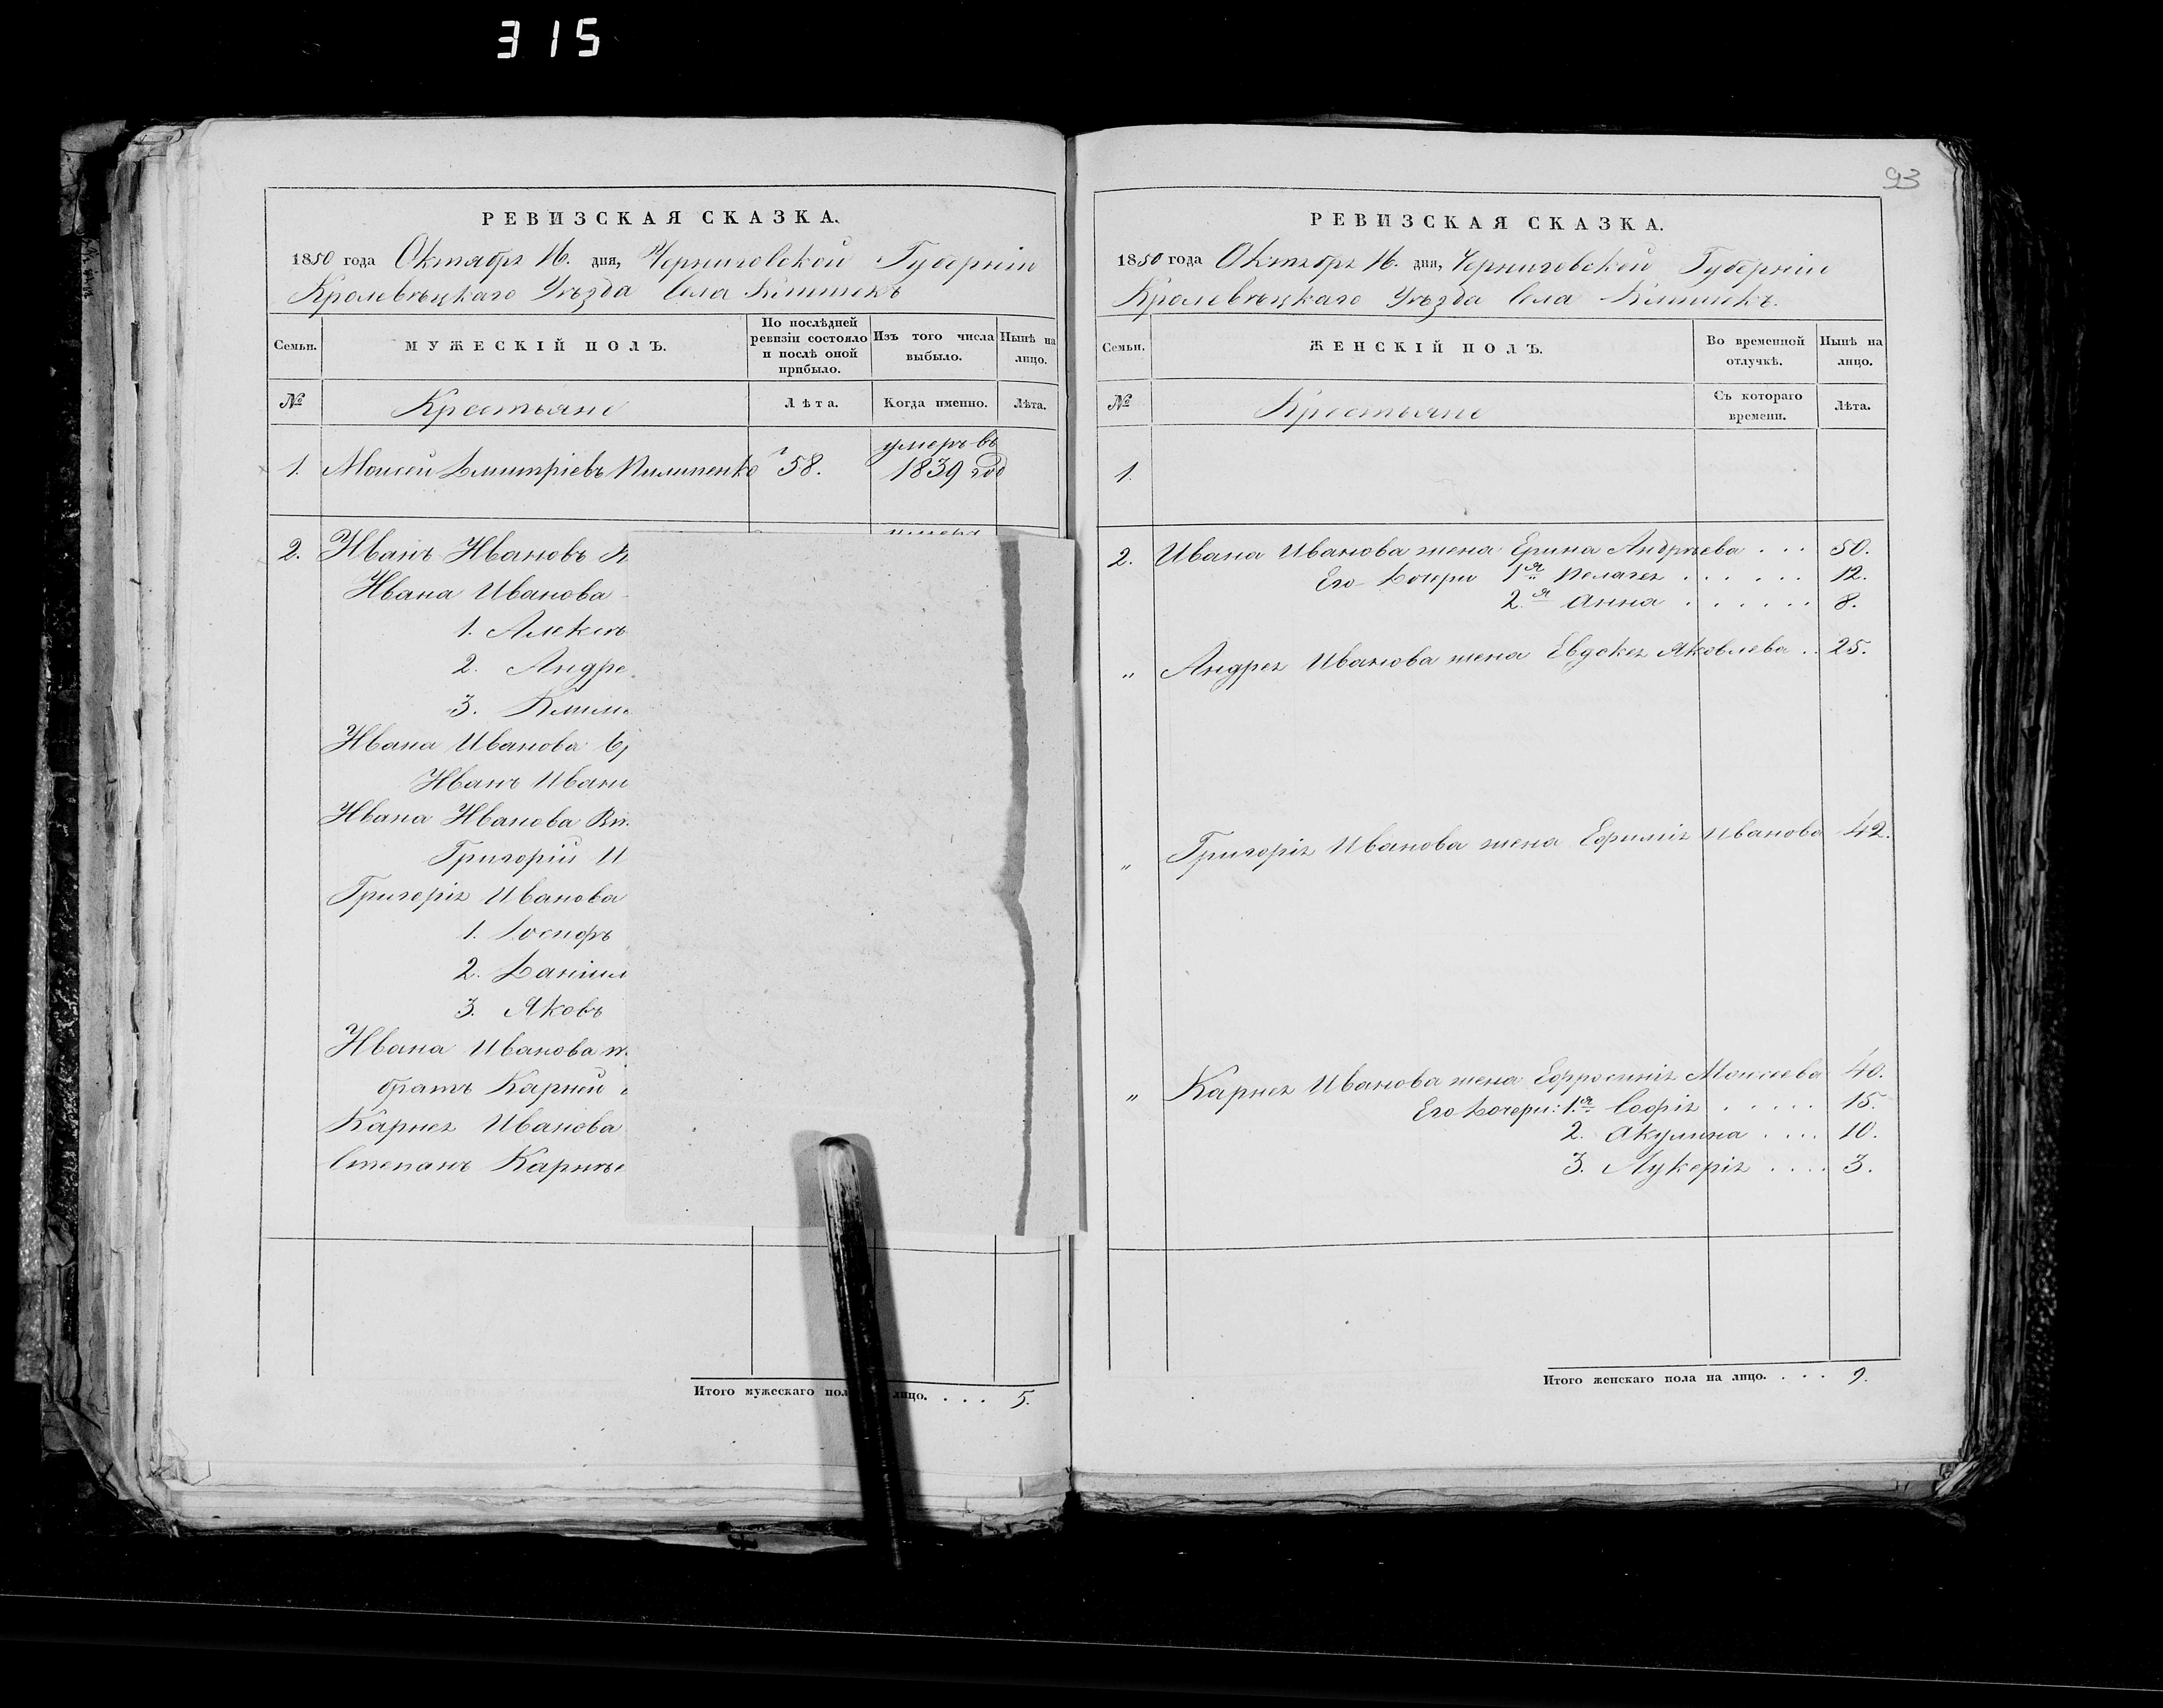 315
РЕВИЗСКАЯ СКАЗКА.
1850 года Октября 16. дня, Черниговской Губерніи
Кролевѣцкаго Уѣзда Села Клишекъ
Семьи.
МУЖЕСКІЙ ПОЛЪ.
По послѣдней ревизіи состояло и послѣ оной прибыло.
Изъ того числа выбыло.
Нынѣ на лицо.
№
Крестьяне
Лѣта.
Когда именно.
Лѣта.
1. Моисей Дмитріевъ Пилипенко 58. умеръ въ 1839 год
2. Иванъ Ивановъ
Ивана Иванова
1. Алексѣ
2. Андре
3. Клим
Ивана Иванова
Иванъ Ивано
Ивана Иванова
Григорій И
Григорія Иванова
1. Іосифъ
2. Даніил
3. Яковъ
Ивана Иванова
братъ Карней
Карнея Иванова
Степанъ Карнѣе
Итого мужескаго пол лицо. . . . 5.
93
РЕВИЗСКАЯ СКАЗКА.
1850 года Октября 16. дня, Черниговской Губерніи
Кролевѣцкаго Уѣзда Села Клишекъ.
Семьи.
ЖЕНСКІЙ ПОЛЪ.
Во временной отлучкѣ.
Нынѣ на лицо.
№
Крестьяне
Съ котораго времени.
Лѣта.
1.
2. Ивана Иванова жена Ерина Андрѣева . . . 50.
Его Дочери 1я Пелагея . . . . . . 12.
2.я Анна . . . . . . 8.
„ Андрея Иванова жена Евдокея Яковлева . . 25.
„ Григорія Иванова жена Ефимія Иванова 42.
„ Карнея Иванова жена Ефросинія Моисеева 40.
Его Дочери: 1.я Софія . . . . . 15.
2. Акулина . . . . 10.
3. Лукерія . . . . 3.
Итого женскаго пола на лицо. . . . 9.